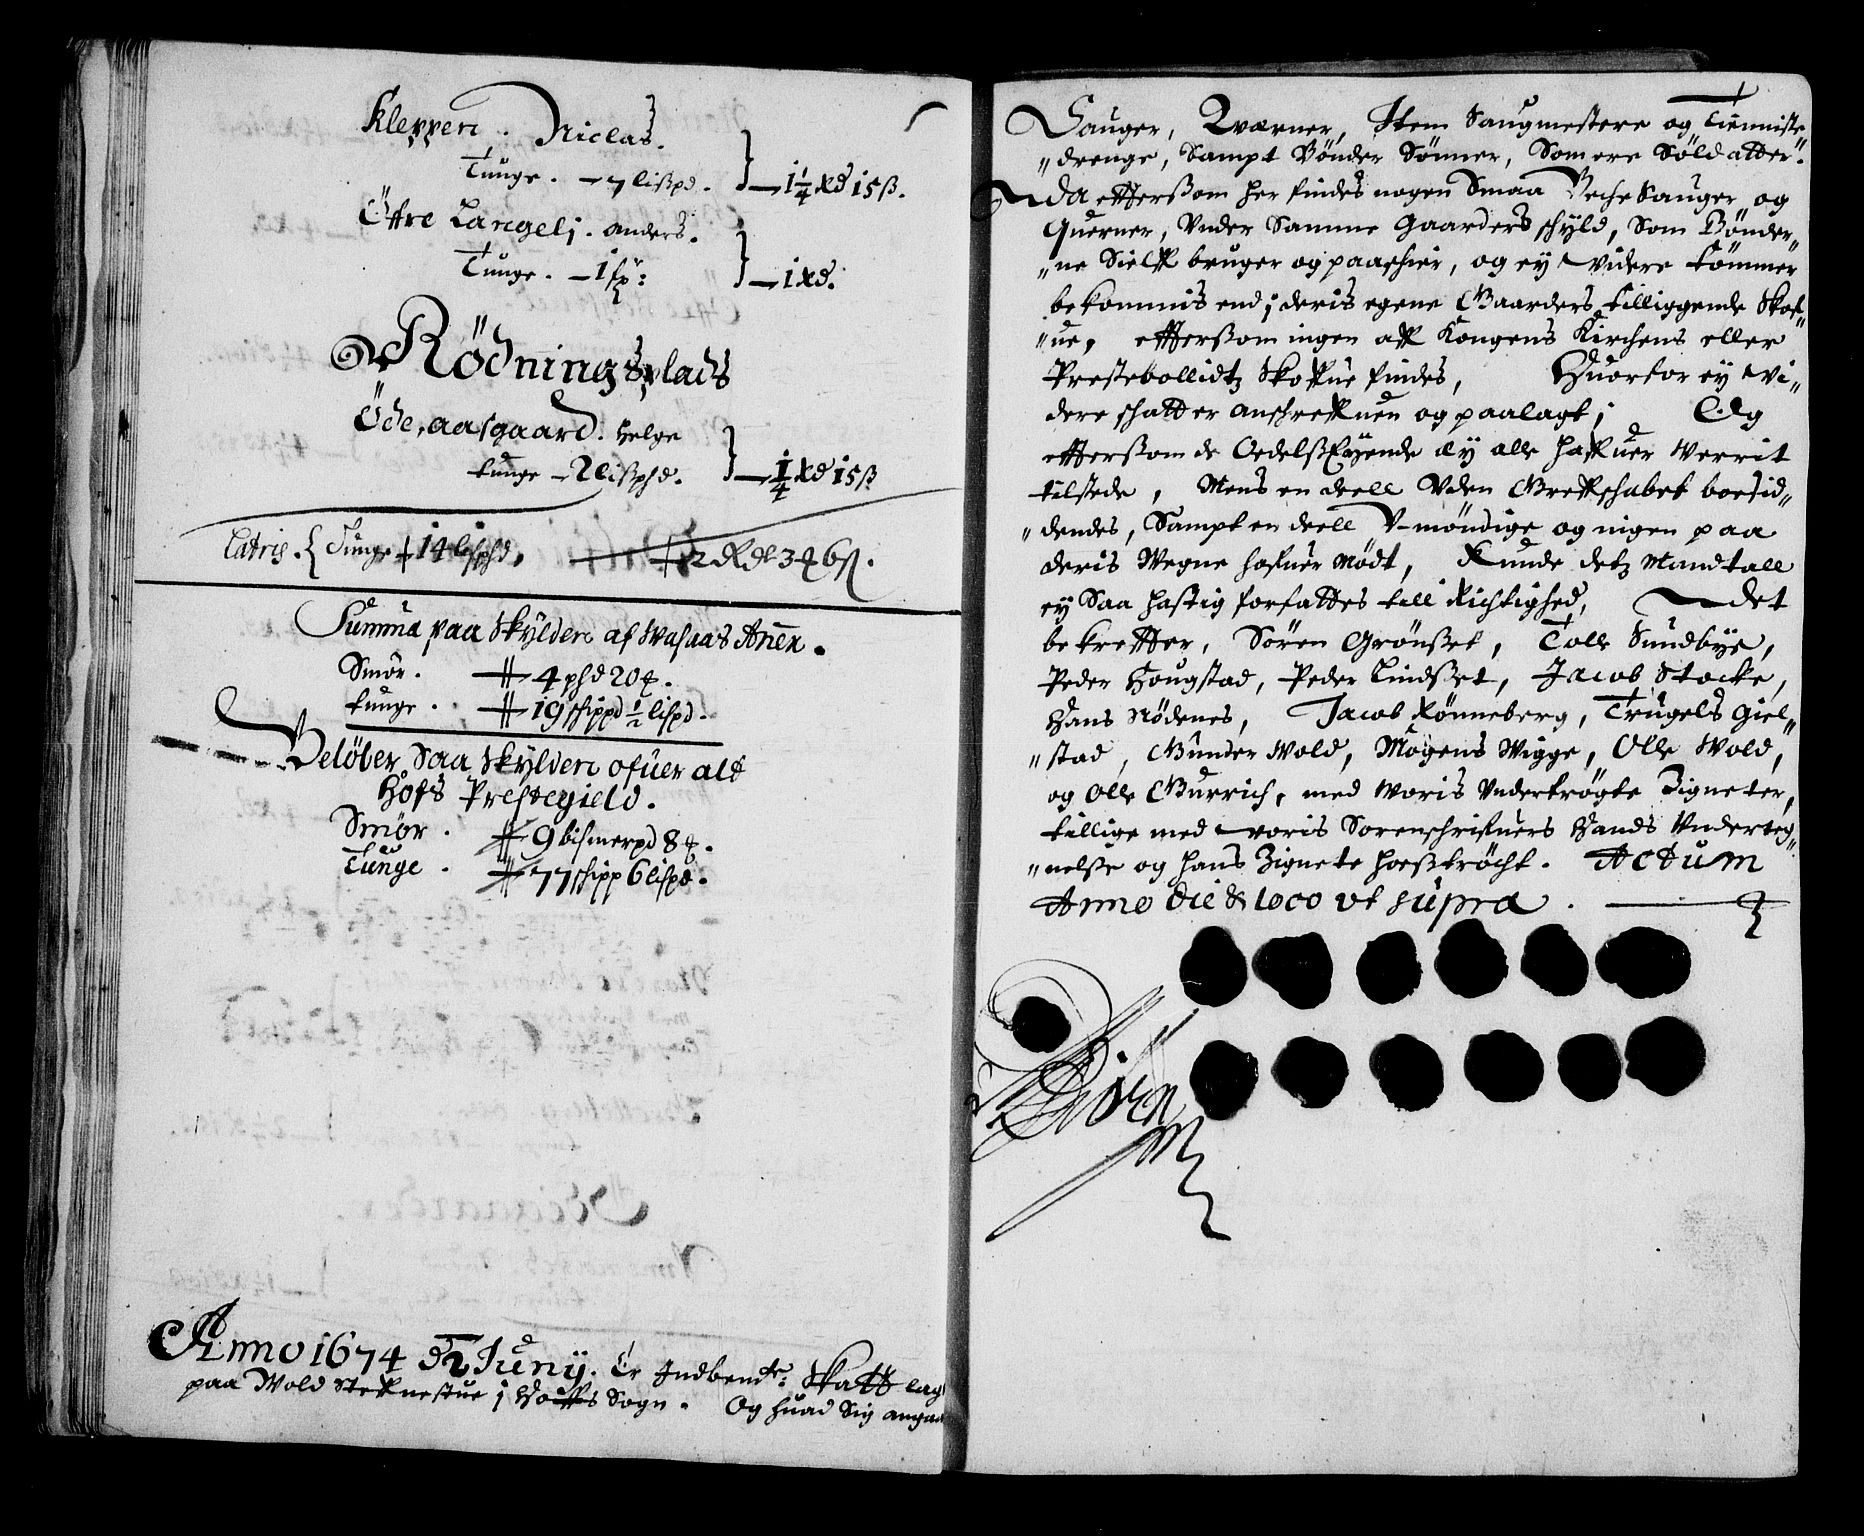 Kleppen. Niclas.
Tunge. — 7 lißpd. } — 1¼ Rd 15 ß.
Öffre Langeli. anders.
Tunge. — 1 } — 1 Rd.
Rödningsplads
Öde, aasgaard. Helge
tunge — 2 lißphd. } — ¼ Rd 15 ß
Latris. { Tunge 14 lisphd,
Summa paa Skylden af Wasaas Anex.
Smör. 4 phd 20
tunge. 19 schippd ½ lispd.
Belöber Saa Skylden ofuer alt
Hofs Prestegield.
Smör. 9 bismerpd 8
Tunge. 77 schipp 6 lispd.
Anno 1674 Juny. Er Skatt lag
paa Wold Steffnestue i Hoffs Sogn. Og huad Sig angaa
Sauger, Qværner, Item Saugmestere og Tienniste„
„drenge, Sampt Bönder Sönner, Som ere Söldatter.
Da effterßom her findes nogen Smaa Beche Sauger og
Querner, Vnder Samme Gaarders schyld, Som Bönder„
„ne Sielff bruger og paaschier, og ey videre tömmer
bekommis end i deris egene Gaarders tilliggende Skof„
„ue, effterßom ingen aff Kongens Kirchens eller
Prestebollidtz Skoffue findes, Huorfor ey vi„
dere schatt er anschreffuen og paalagt; Og
effterßom de Oedelsß Eyende ey alle haffuer Werrit
tilstede, Mens en deell Vden Greffschabet boesid„
„dendes, Sampt en deell V-möndige og ingen paa
deris Wegne hafuer Mödt, Kunde detz Mandtall
ey Saa hastig forfattes till Richtighed, Det
bekreffter, Sören Grönßet, Tolle Sundbye,
Peder Hougstad, Peder Lindßet, Jacob Stocke,
Hans Nödenes, Jacob Rönneberg, Trugels Giel„
„stad, Gunder Wold, Mogens Wigge, Olle Wold,
og Olle Gurrich, med Woris Vndertrögte Zigneter,
tillige med voris Sorenschrifuers Hands Vnderteg„
„nelse og hans Zignete hoeßtröcht. Actum
Anno die & loco vt supra.